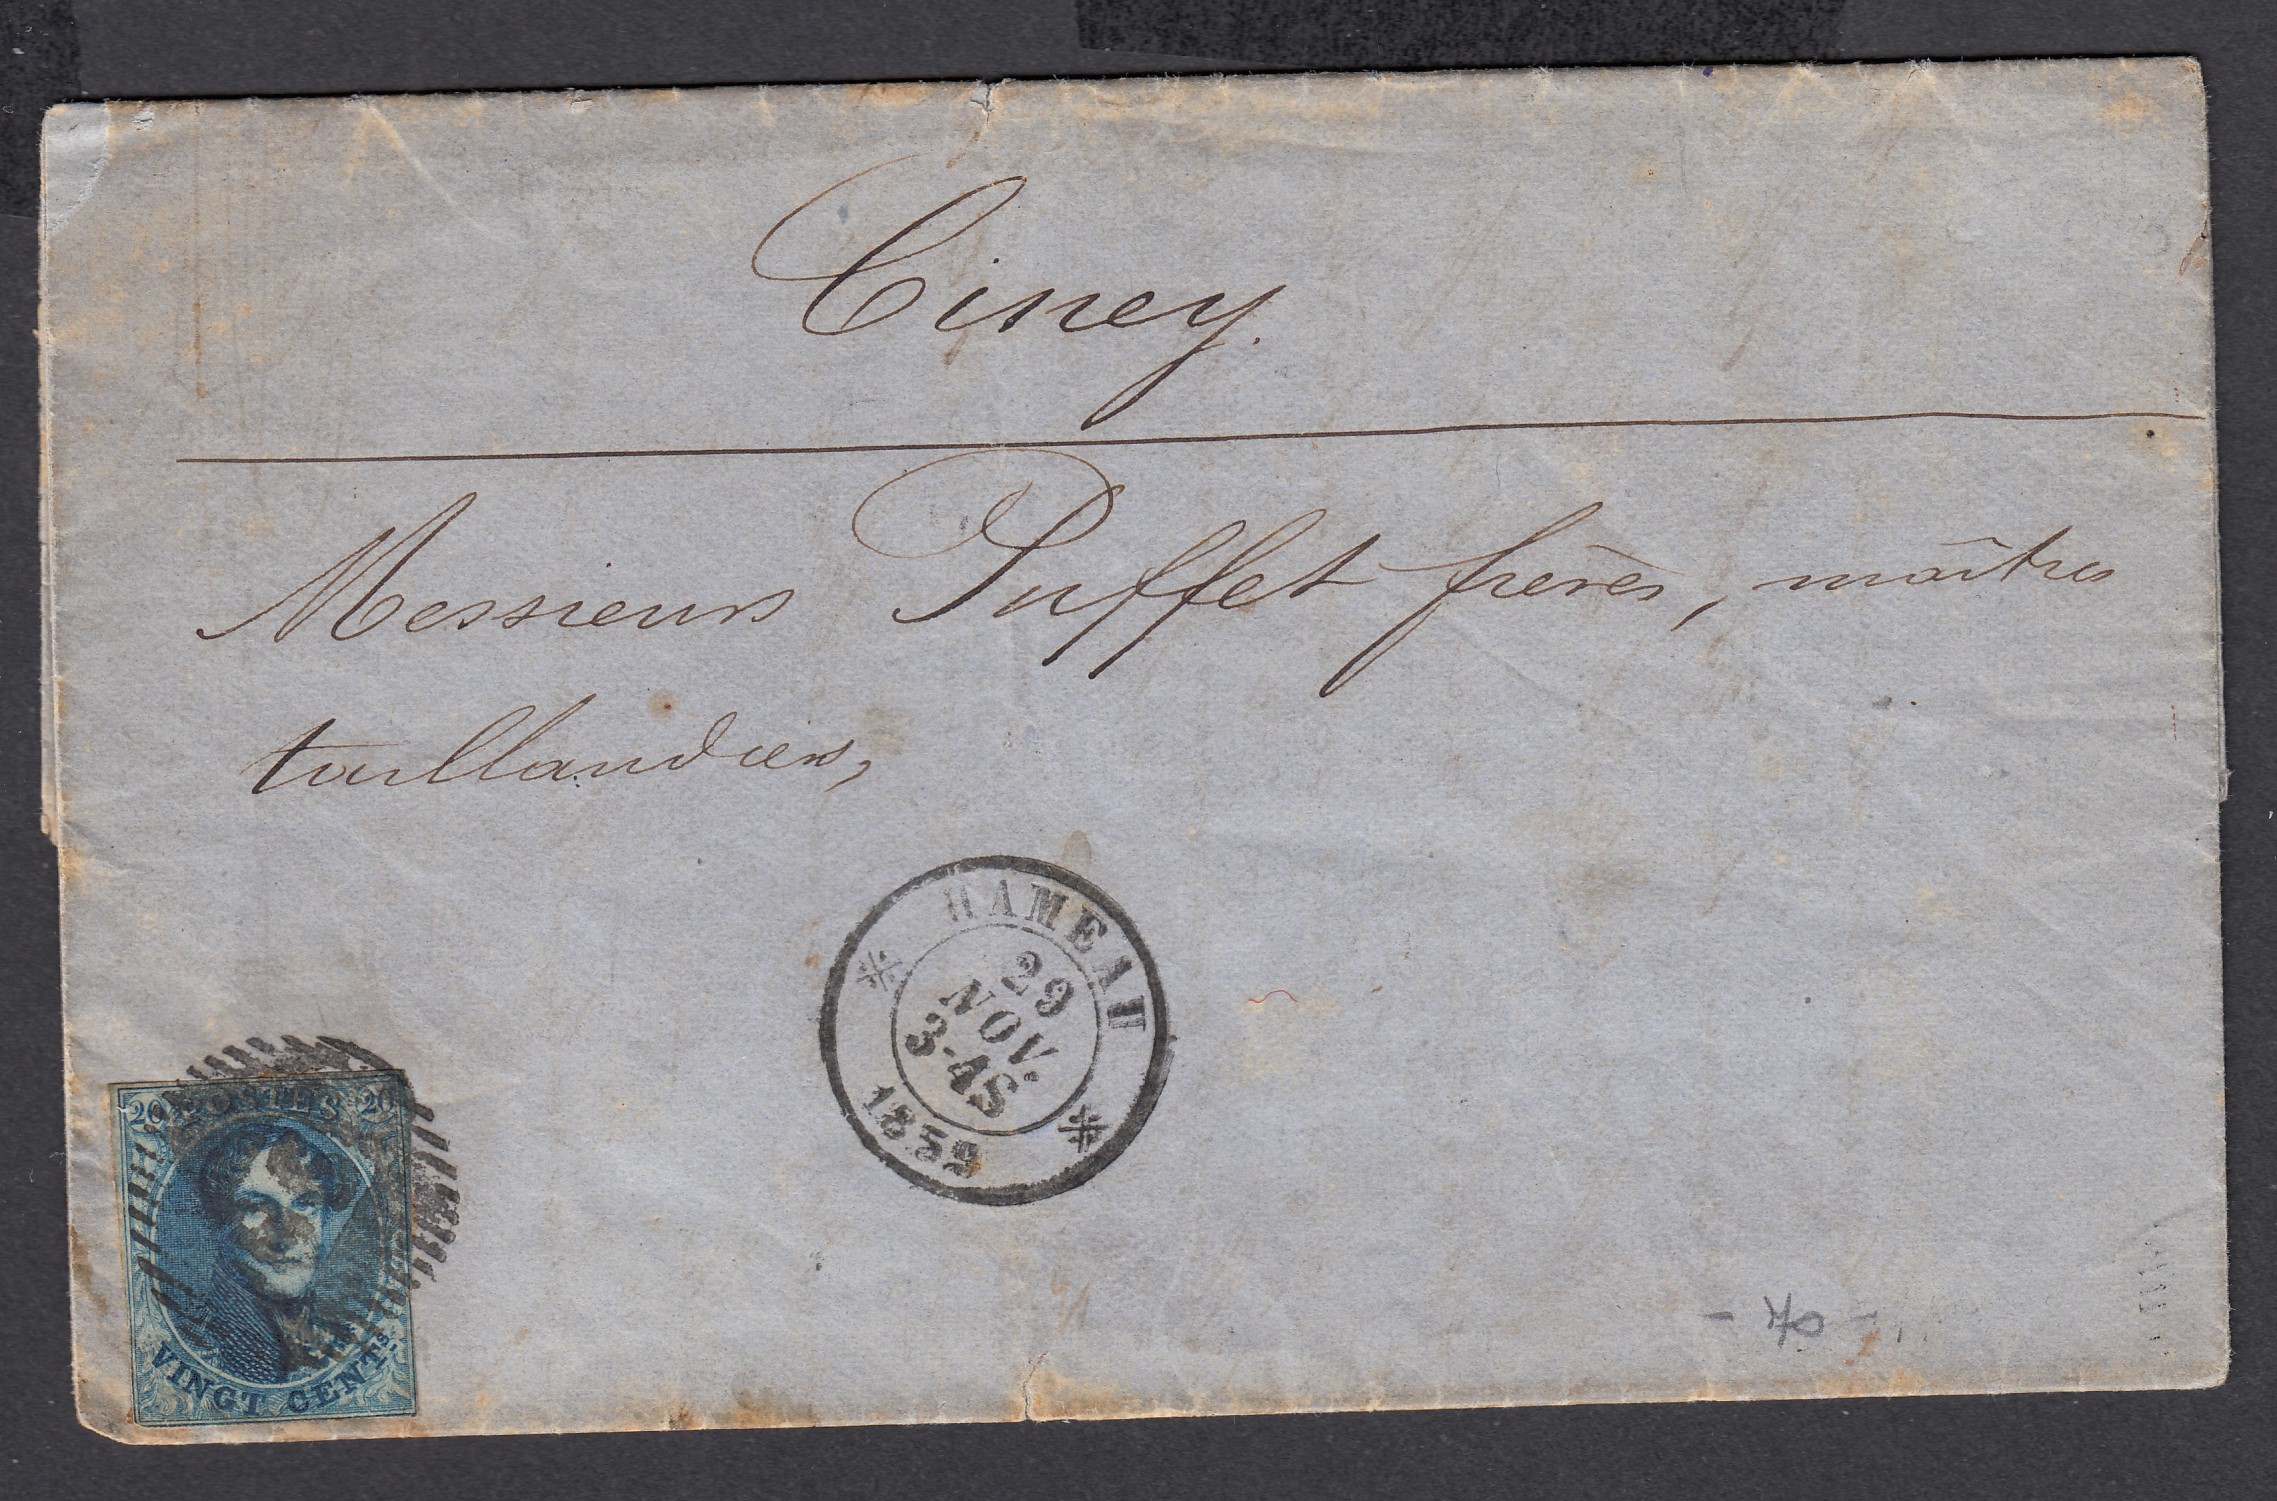 Ciney.
Messieurs Puffet frères, maîtres
taillandiers,
HAMEAU
29
NOV.
3-4S
1859
20 POSTES 20
VINGT CENTS.